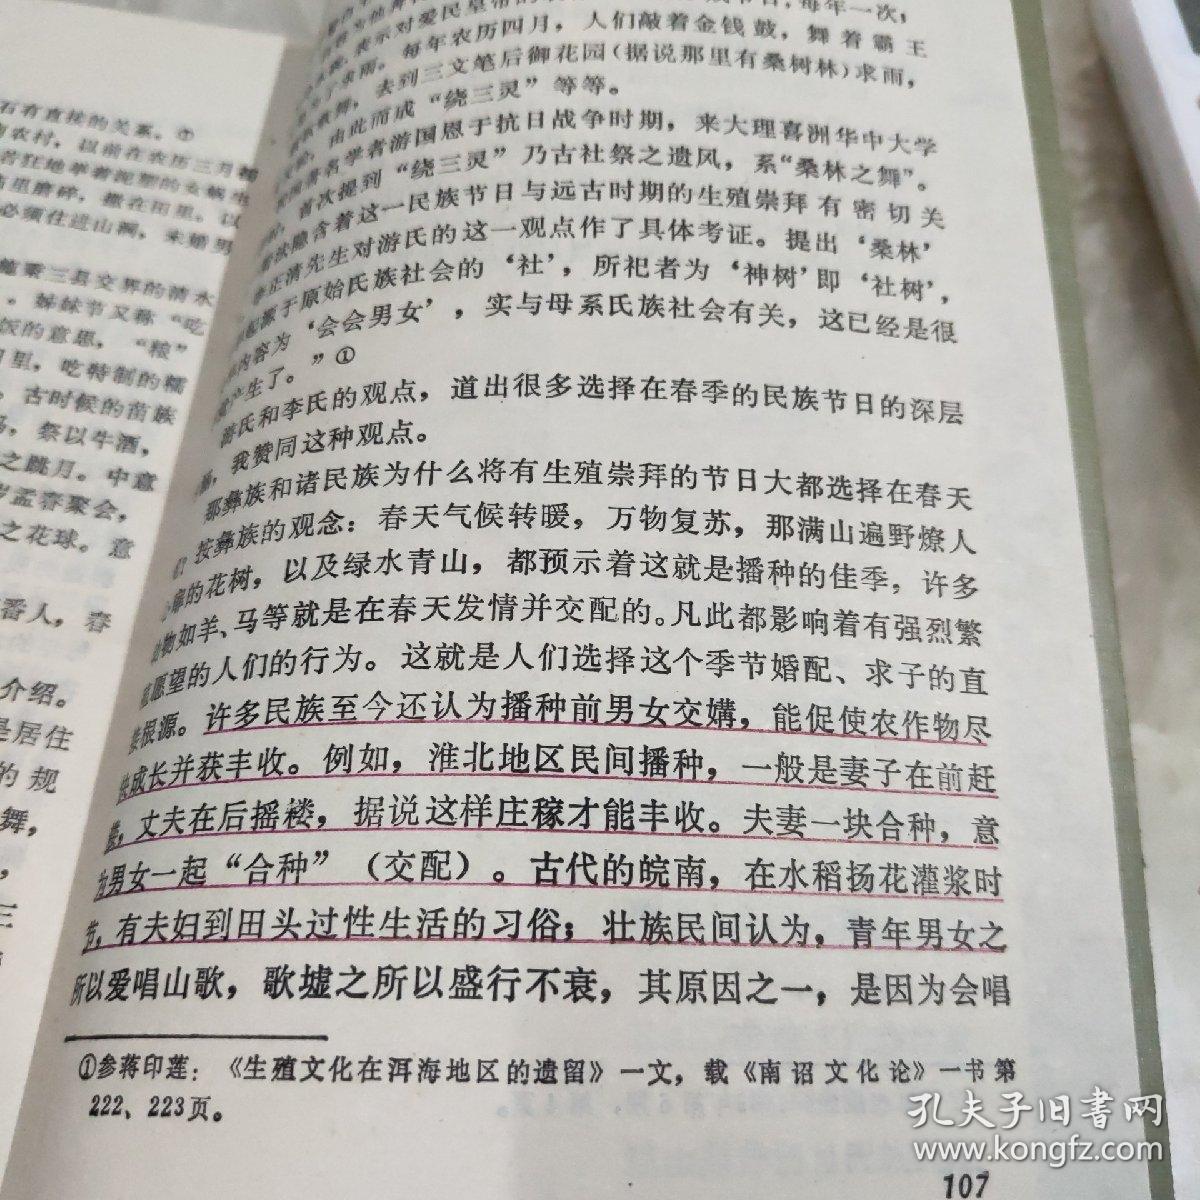 石有直接的关系。①
农村，以前在农历三月
苦狂地举着泥塑的女娲
街里磨碎，撒在田里，以
必须住进山洞，未婚男
秉三县交界的清水
。姊妹节又称“吃
饭的意思，“粮”
里，吃特制的糯
，古时候的苗族
，祭以牛酒，
之跳月。中意
岁孟春聚会，
之花球。意
番人，春
介绍。
是居住
的规
舞，
，
三
节日，每年一次；
表示对爱民皇帝的
求雨。每年农历四月，人们敲着金钱鼓，舞着霸王
去到三文笔后御花园（据说那里有桑树林）求雨，
由此而成“绕三灵”等等。
著名学者游国恩于抗日战争时期，来大理喜洲华中大学
首次提到“绕三灵”乃古社祭之遗风，系“桑林之舞”。
隐含着这一民族节日与远古时期的生殖崇拜有密切关
正清先生对游氏的这一观点作了具体考证。提出‘桑林’
起源于原始氏族社会的‘社’，所祀者为‘神树’即‘社树’，
内容为‘会会男女’，实与母系氏族社会有关，这已经是很
产生了。”①
游氏和李氏的观点，道出很多选择在春季的民族节日的深层
，我赞同这种观点。
那彝族和诸民族为什么将有生殖崇拜的节日大都选择在春天
？按彝族的观念：春天气候转暖，万物复苏，那满山遍野燎人
心扉的花树，以及绿水青山，都预示着这就是播种的佳季，许多
动物如羊、马等就是在春天发情并交配的。凡此都影响着有强烈繁
殖愿望的人们的行为。这就是人们选择这个季节婚配、求子的直
接根源。许多民族至今还认为播种前男女交媾，能促使农作物尽
快成长并获丰收。例如，淮北地区民间播种，一般是妻子在前赶
，丈夫在后摇耧，据说这样庄稼才能丰收。夫妻一块合种，意
为男女一起“合种”（交配）。古代的皖南，在水稻扬花灌浆时
节，有夫妇到田头过性生活的习俗；壮族民间认为，青年男女之
所以爱唱山歌，歌墟之所以盛行不衰，其原因之一，是因为会唱
①参蒋印莲：《生殖文化在洱海地区的遗留》一文，载《南诏文化论》一书第
222、223页。
107
孔夫子旧书网
www.kongfz.com